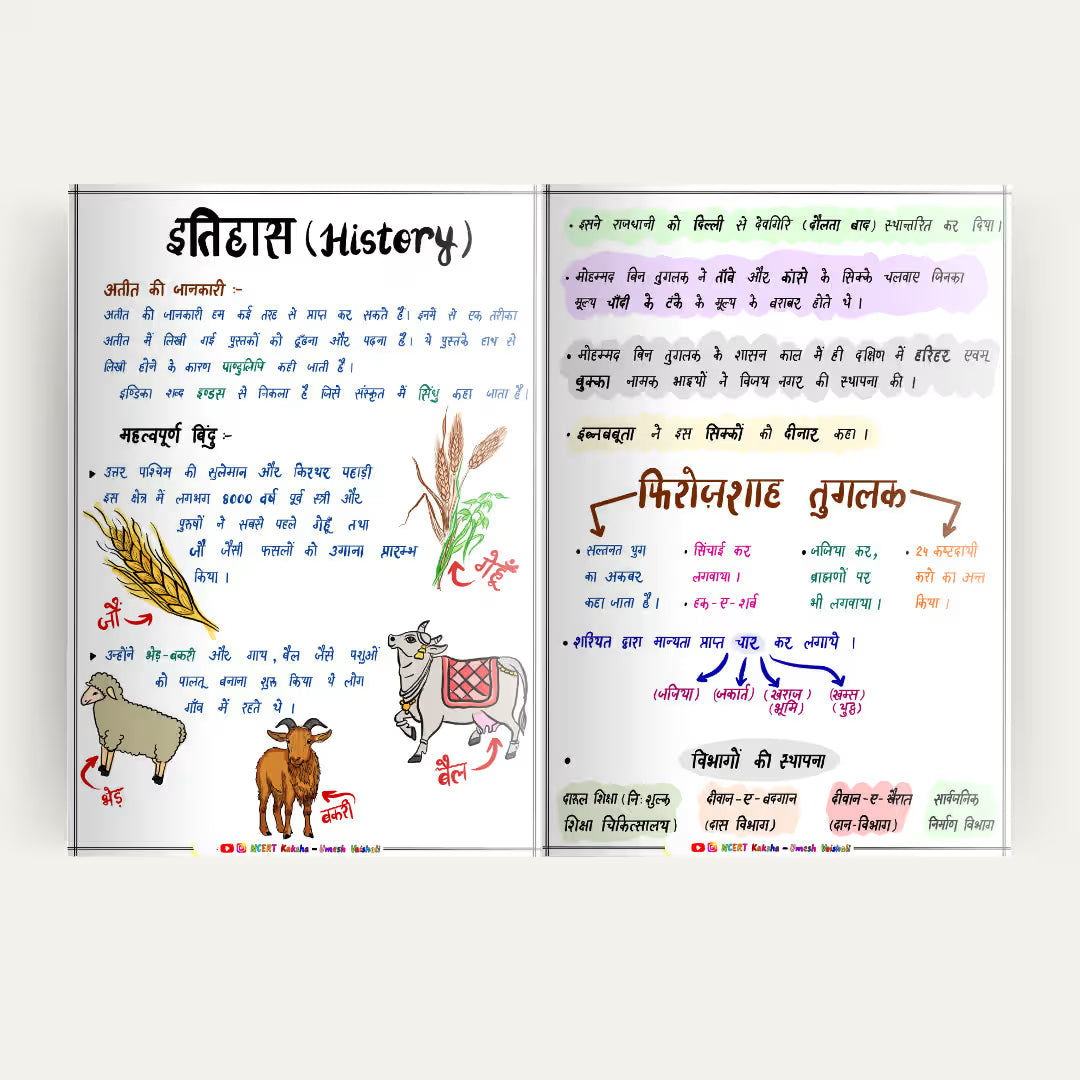 इतिहास (History)
अतीत की जानकारी :-
अतीत की जानकारी हम कई तरह से प्राप्त कर सकते है। इनमें से एक तरीका
अतीत में लिखी गई पुस्तकों को ढूँढना और पढना है। ये पुस्तके हाथ से
लिखी होने के कारण पाण्डुलिपि कही जाती है।
इण्डिका शब्द इण्डस से निकला है जिसे संस्कृत में सिंधु कहा जाता है।
महत्वपूर्ण बिंदु :-
उत्तर पश्चिम की सुलेमान और किरथर पहाड़ी
इस क्षेत्र में लगभग 8000 वर्ष पूर्व स्त्री और
पुरुषों ने सबसे पहले गेहूँ तथा
जौ जैसी फसलों को उगाना प्रारम्भ
किया।
गेहूँ
जौं
उन्होंने भेड़-बकरी और गाय, बैल जैसे पशुओं
को पालतू बनाना शुरू किया ये लोग
गाँव में रहते थे।
भेड़
बकरी
बैल
NCERT Kaksha - Umesh Vaishali
• इसने राजधानी को दिल्ली से देवगिरि (दौलता बाद) स्थान्तरित कर दिया।
• मोहम्मद बिन तुगलक ने ताँबे और कांसे के सिक्के चलवाए जिनका
मूल्य चाँदी के टंके के मूल्य के बराबर होते थे।
• मोहम्मद बिन तुगलक के शासन काल में ही दक्षिण में हरिहर एवम्
बुक्का नामक भाइयों ने विजय नगर की स्थापना की।
• इब्नबबूता ने इस सिक्कों को दीनार कहा।
फिरोज़शाह तुगलक
• सल्तनत युग
का अकबर
कहा जाता है।
• सिंचाई कर
लगवाया।
• हक-ए-शर्ब
• जजिया कर,
ब्राह्मणों पर
भी लगवाया।
• 24 कष्टदायी
करो का अन्त
किया।
• शरियत द्वारा मान्यता प्राप्त चार कर लगाये।
(जजिया) (जकार्त) (खराज) (खम्स)
(भूमि) (युद्ध)
• विभागों की स्थापना
दारुल शिक्षा (नि:शुल्क
शिक्षा चिकित्सालय)
दीवान-ए-बंदगान
(दास विभाग)
दीवान-ए-खैरात
(दान-विभाग)
सार्वजनिक
निर्माण विभाग
NCERT Kaksha - Umesh Vaishali